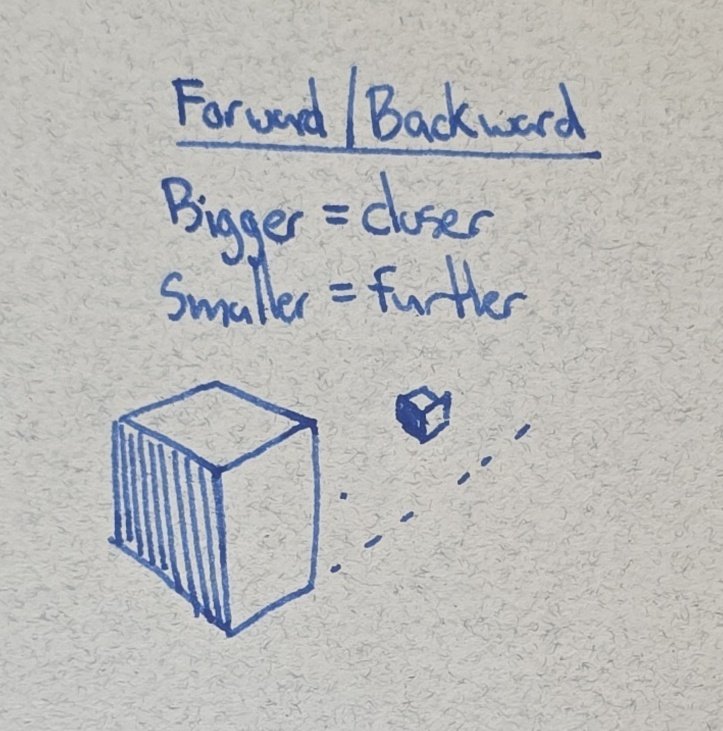 Forward/Backward
Bigger = closer
Smaller = further